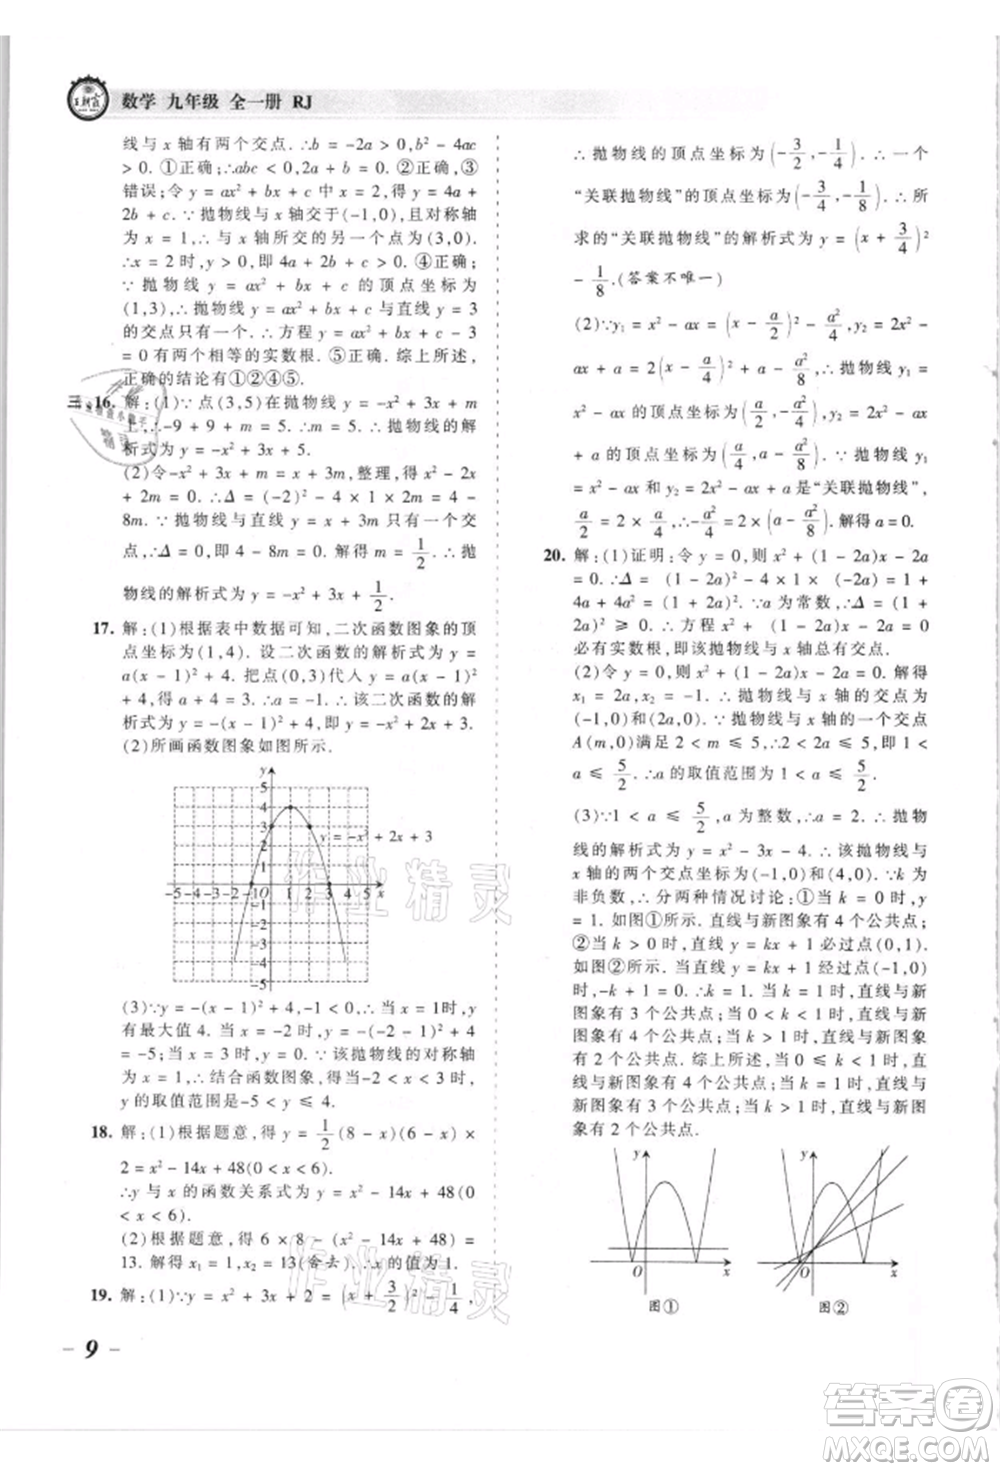 王朝霞 数学 九年级 全一册 RJ
线与 x 轴有两个交点.∴b = -2a > 0, b² - 4ac
> 0. ①正确;∴abc < 0,2a + b = 0. ②正确,③
错误;令 y = ax² + bx + c 中 x = 2,得 y = 4a +
2b + c.∵抛物线与 x 轴交于(-1,0),且对称轴
为 x = 1,∴与 x 轴所交的另一个点为(3,0).
∴x = 2 时,y > 0,即 4a + 2b + c > 0. ④正确;
∵抛物线 y = ax² + bx + c 的顶点坐标为
(1,3),∴抛物线 y = ax² + bx + c 与直线 y = 3
的交点只有一个.∴方程 ax² + bx + c - 3
= 0 有两个相等的实数根. ⑤正确. 综上所述,
正确的结论有①②④⑤.
三、16. 解:(1)∵点(3,5)在抛物线 y = -x² + 3x + m
上,∴-9 + 9 + m = 5. 解得 m = 5.∴抛物线的解
析式为 y = -x² + 3x + 5.
(2)令-x² + 3x + m = x + 3m,整理,得 x² - 2x
+ 2m = 0.∴Δ = (-2)² - 4 × 1 × 2m = 4 -
8m.∵抛物线与直线 y = x + 3m 只有一个交
点,∴Δ = 0,即 4 - 8m = 0. 解得 m = 1/2.∴抛
物线的解析式为 y = -x² + 3x + 1/2.
17. 解:(1)根据表中数据可知,二次函数图象的顶
点坐标为(1,4). 设二次函数的解析式为 y =
a(x - 1)² + 4. 把点(0,3)代入 y = a(x - 1)² +
4,得 a + 4 = 3.∴a = -1.∴该二次函数的解
析式为 y = -(x - 1)² + 4,即 y = -x² + 2x + 3.
(2)所画函数图象如图所示.
y
5
4
3
2
1
y = -x² + 2x + 3
-5 -4 -3 -2 -1 O 1 2 3 4 5 x
-1
-2
-3
-4
-5
(3)∵y = -(x - 1)² + 4,-1 < 0,∴当 x = 1时,y
有最大值 4. 当 x = -2 时,y = -(-2 - 1)² + 4
= -5;当 x = 3 时,y = 0.∵该抛物线的对称轴
为 x = 1,∴结合函数图象,当-2 < x < 3 时,
y 的取值范围是-5 < y ≤ 4.
18. 解:(1)根据题意,得 y = 1/2(8 - x)(6 - x) ×
2 = x² - 14x + 48(0 < x < 6).
∴y 与 x 的函数关系式为 y = x² - 14x + 48(0
< x < 6).
(2)根据题意,得 6 × 8 - (x² - 14x + 48) =
13. 解得 x₁ = 1, x₂ = 13(舍去).∴x 的值为 1.
19. 解:(1)∵y = x² + 3x + 2 = (x + 3/2)² - 1/4,
- 9 -
∴抛物线的顶点坐标为(-3/2,-1/4).∴一个
“关联抛物线”的顶点坐标为(-3/4,-1/8).∴所
求的“关联抛物线”的解析式为 y = (x + 3/4)²
- 1/8.(答案不唯一)
(2)∵y₁ = x² - ax = (x - a/2)² - a²/4, y₂ = x² -
ax + a = (x - a/2)² - a²/4 + a,∴抛物线 y₁ =
x² - ax 的顶点坐标为(a/2,-a²/4),抛物线 y₂ = x² -
ax + a 的顶点坐标为(a/2,-a²/4 + a).∵抛物线 y₁
= x² - ax 和 y₂ = x² - ax + a 是“关联抛物线”,
a/2 = 2 × a/2,∴-a²/4 = 2(-a²/4 + a). 解得 a = 0.
20. 解:(1)证明:令 y = 0,则 x² + (1 - 2a)x - 2a
= 0.∴Δ = (1 - 2a)² - 4 × 1 × (-2a) = 1 +
4a² + 4a = (1 + 2a)².∵a 为常数,∴(1 +
2a)² ≥ 0.∴方程 x² + (1 - 2a)x - 2a = 0
必有实数根,即该抛物线与 x 轴总有交点.
(2)令 y = 0,则 x² + (1 - 2a)x - 2a = 0. 解得
x₁ = 2a, x₂ = -1.∴抛物线与 x 轴的交点为
(-1,0)和(2a,0).∵抛物线与 x 轴的一个交点
A(m,0)满足 2 < m ≤ 5,∴2 < 2a ≤ 5.∴1 <
a ≤ 5/2.∴a 的取值范围为 1 < a ≤ 5/2.
(3)∵1 < a ≤ 5/2, a 为整数,∴a = 2.∴抛物
线的解析式为 y = x² - 3x - 4.∴该抛物线与 x
轴的交点坐标为(-1,0)和(4,0).∵k 为
非负数,∴分两种情况讨论:①当 k = 0 时,y =
1. 如图①所示. 直线与新图象有 4 个公共点;
②当 k > 0 时,直线 y = kx + 1 必过点(0,1).
如图②所示. 直线 y = kx + 1 过点(-1,0)时,
-k + 1 = 0.∴k = 1.∴当 k = 1 时,直线与新
图象有 3 个公共点;当 0 < k < 1 时,直线与新
图象有 4 个公共点;当 k > 1 时,直线与新图象
有 2 个公共点. 综上所述,当 0 ≤ k < 1 时,直
线与新图象有 4 个公共点;当 k = 1 时,直线与
新图象有 3 个公共点;当 k > 1 时,直线与新图
象有 2 个公共点.
y O x 图①
y O x 图②
作业精灵
作业精灵
答案圈
MXQE.COM